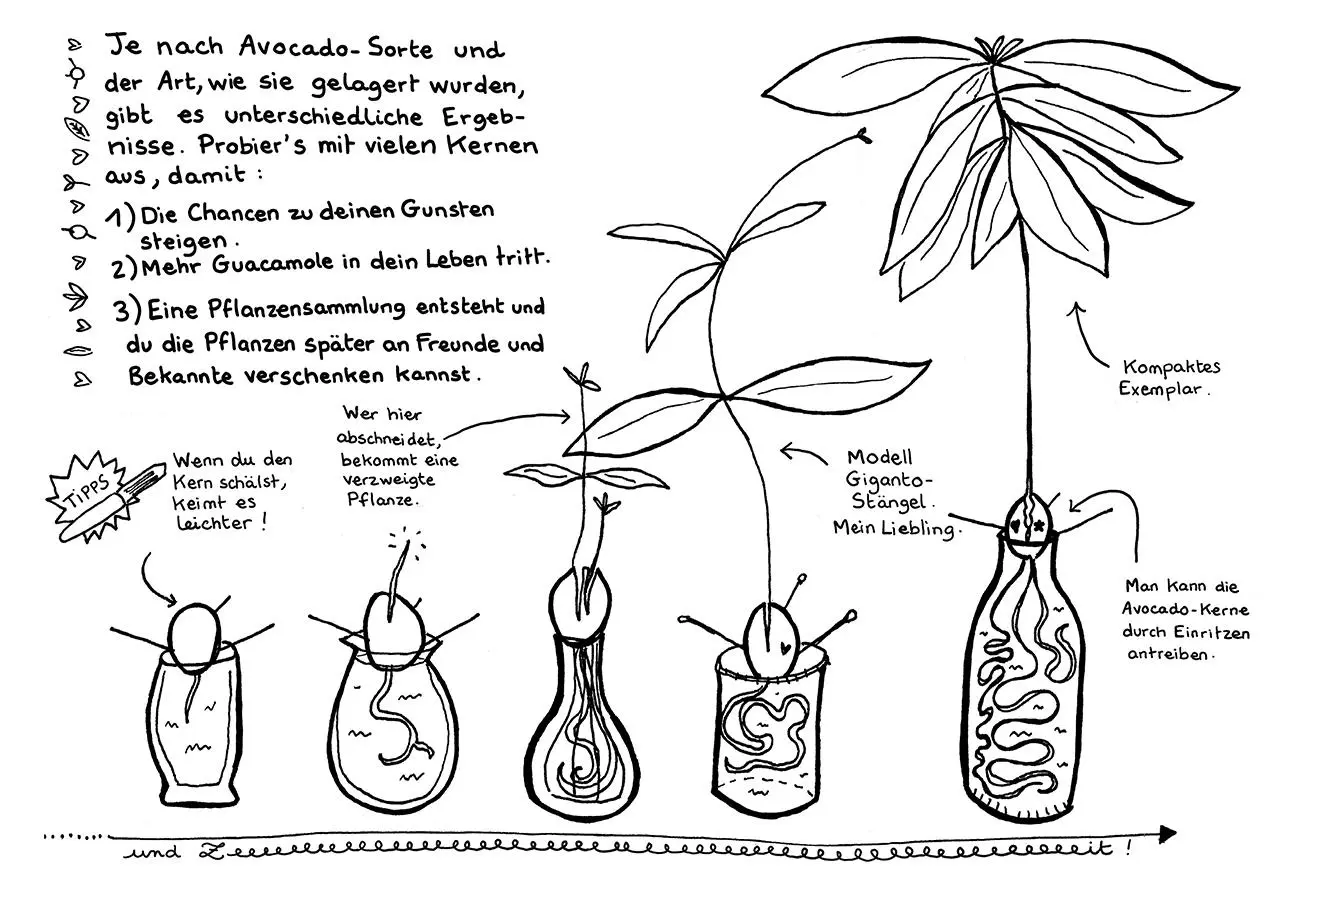 Je nach Avocado-Sorte und
der Art, wie sie gelagert wurden,
gibt es unterschiedliche Ergeb-
nisse. Probier's mit vielen Kernen
aus, damit:
1) Die Chancen zu deinen Gunsten
steigen.
2) Mehr Guacamole in dein Leben tritt.
3) Eine Pflanzensammlung entsteht und
du die Pflanzen später an Freunde und
Bekannte verschenken kannst.
TIPPS
Wenn du den
Kern schälst,
keimt es
leichter!
Wer hier
abschneidet,
bekommt eine
verzweigte
Pflanze.
Modell
Giganto-
Stängel.
Mein Liebling.
Kompaktes
Exemplar.
Man kann die
Avocado-Kerne
durch Einritzen
antreiben.
und Zeeeeeeeeeeeeeeeeeeeeeeeeeeeeeeeeeeeeeeeeeeeeeeeeeeeeeeit!